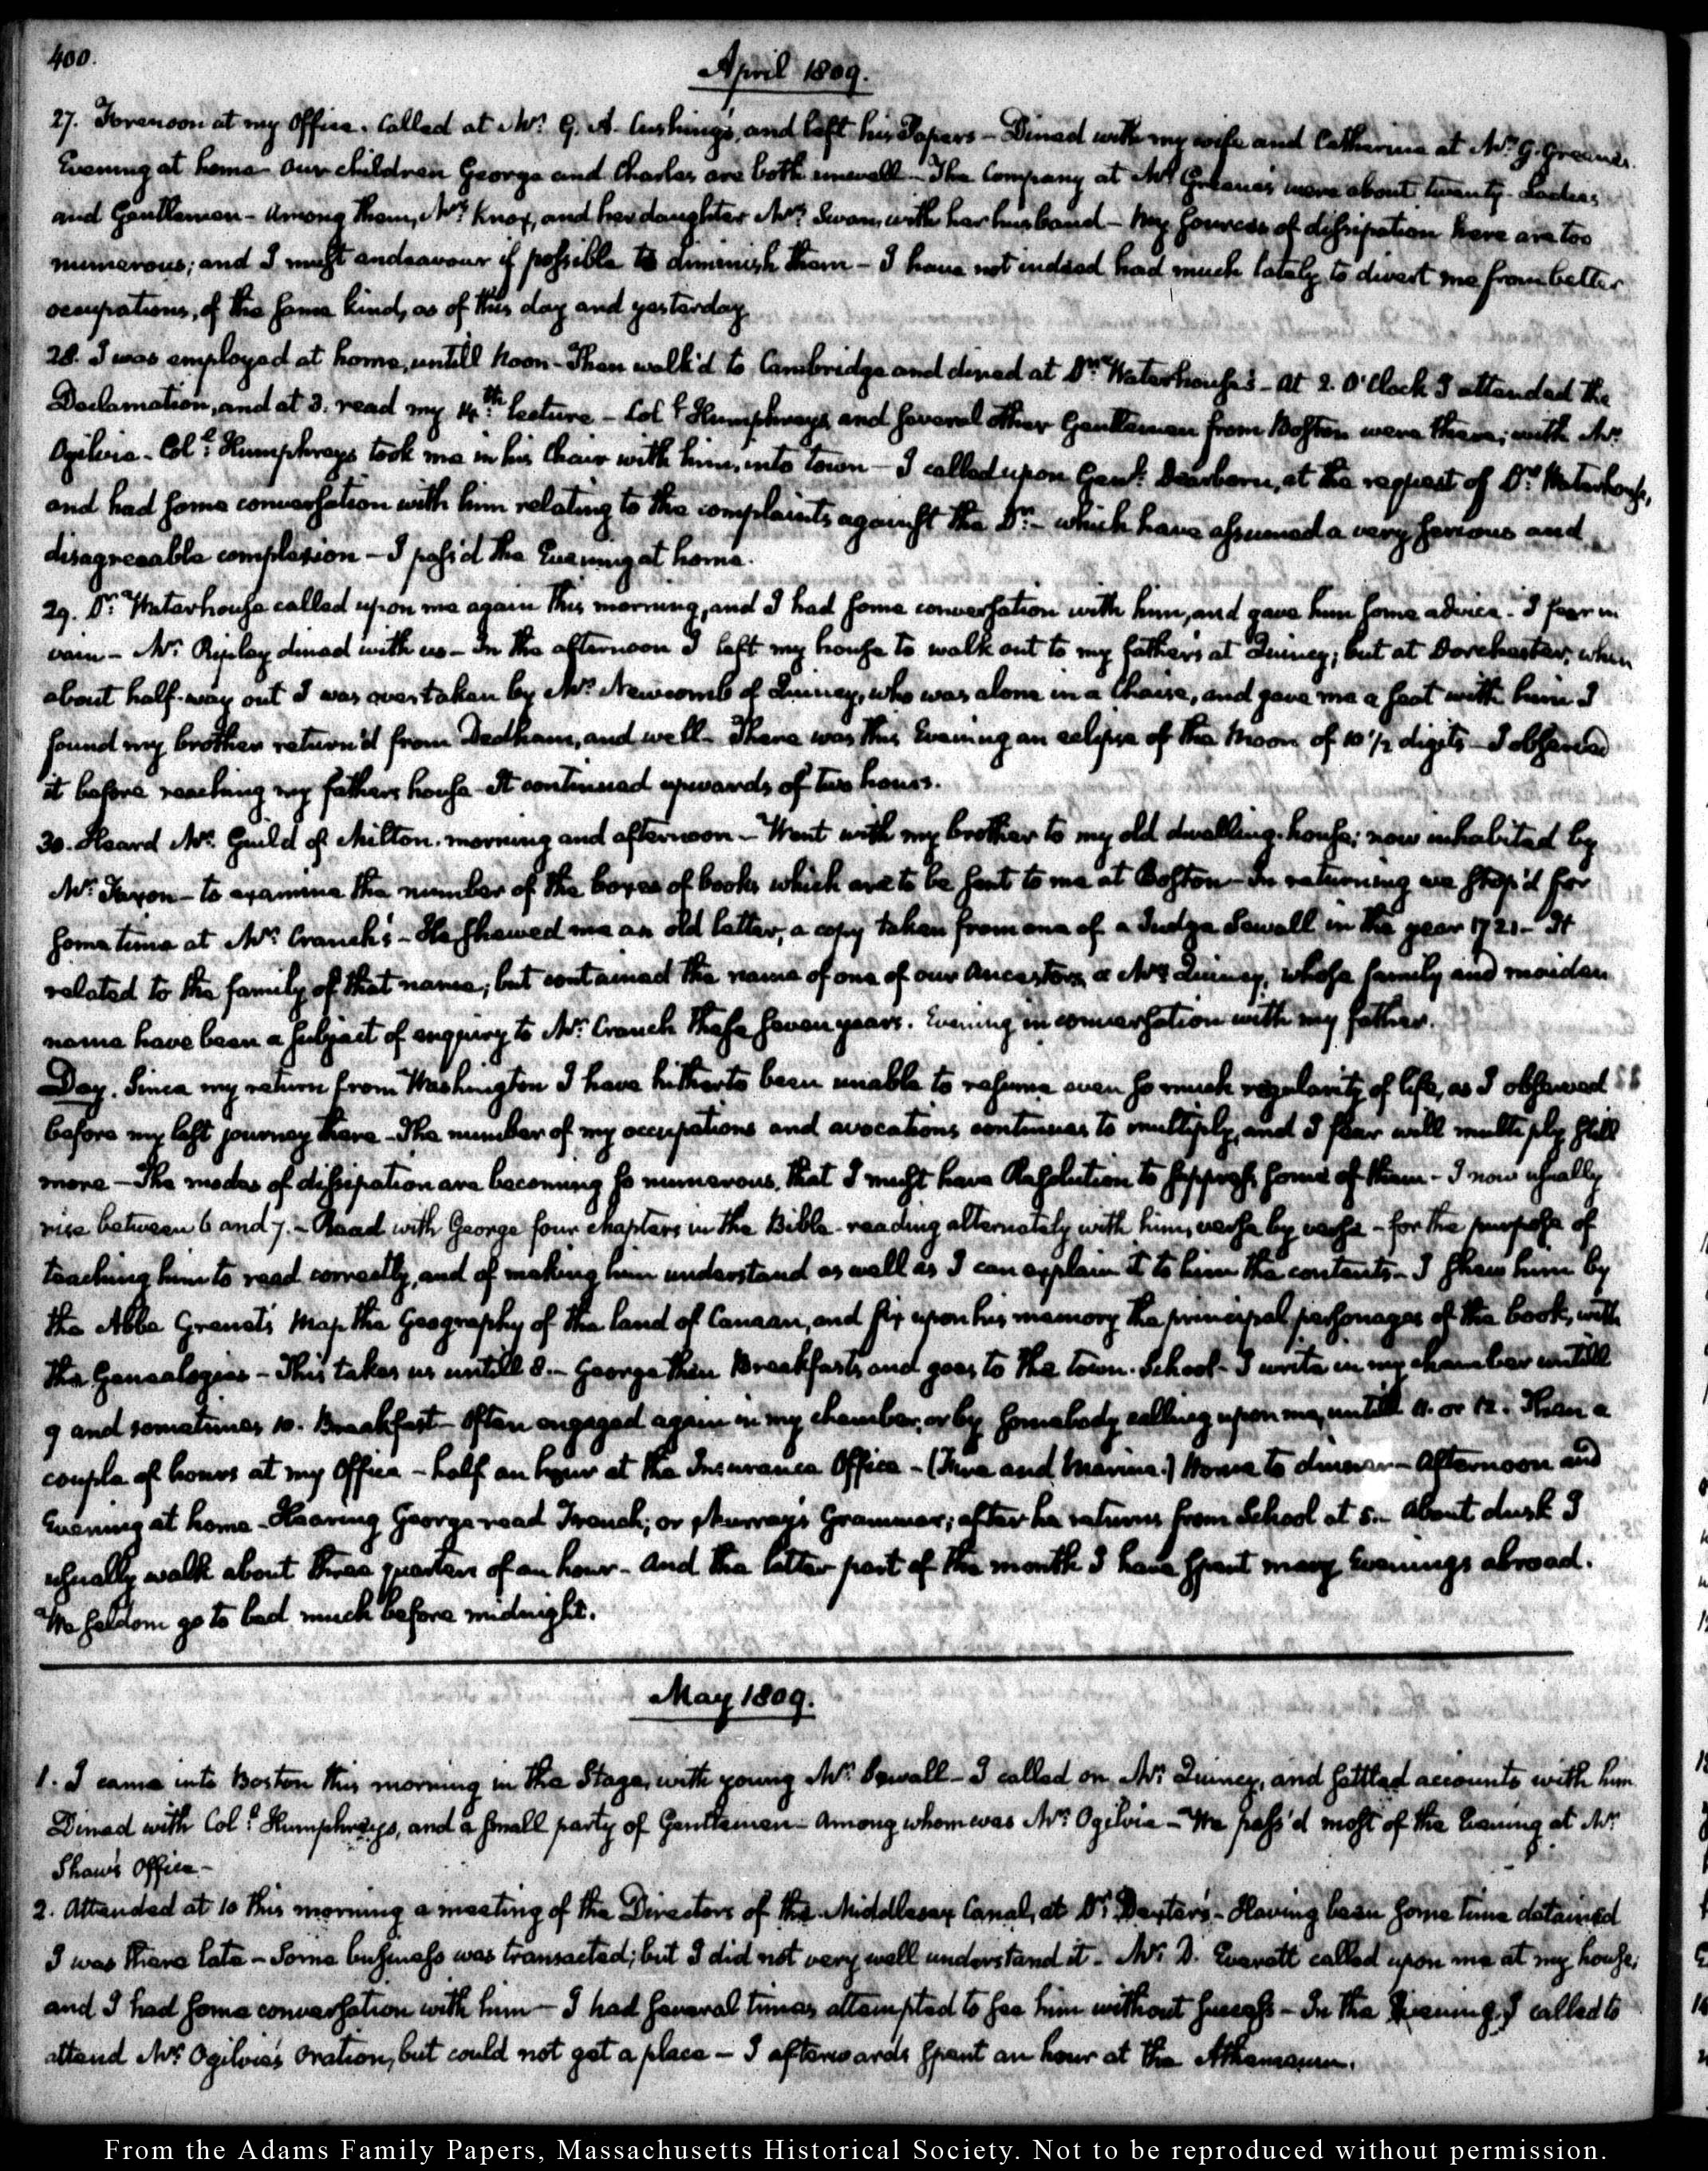 400.
April 1809.
27. Forenoon at my Office. Called at Mr. G. A. Cushing's, and left his Papers – Dined with my wife and Catherine at Mr. G. Greene's.
Evening at home – our children George and Charles are both unwell – The Company at Mr. Greene's were about twenty – Ladies
and Gentlemen – Among them, Mrs. Knox, and her daughter Mrs. Swan, with her husband – My sources of dissipation here are too
numerous; and I must endeavour if possible to diminish them – I have not indeed had much lately to divert me from better
occupations, of the same kind, as of this day and yesterday.
28. I was employed at home, untill Noon – Then walk'd to Cambridge and dined at Dr. Waterhouse's – At 2. O'Clock I attended the
Declamation, and at 3. read my 14th. lecture – Coll. Humphreys, and several other Gentlemen from Boston were there; with Mr.
Ogilvie – Coll. Humphreys took me in his Chair with him, into town – I called upon Genl. Dearborn, at the request of Dr. Waterhouse,
and had some conversation with him relating to the complaints against the Dr. – which have assumed a very serious and
disagreeable complexion – I pass'd the Evening at home.
29. Dr. Waterhouse called upon me again this morning, and I had some conversation with him, and gave him some advice – I fear in
vain – Mr. Ripley dined with us – In the afternoon I left my house to walk out to my father's at Quincy; but at Dorchester, when
about half-way out I was overtaken by Mr. Newcomb of Quincy, who was alone in a Chaise, and gave me a seat with him – I
found my brother return'd from Dedham, and well – There was this Evening an eclipse of the Moon of 10 1/2 digits – I observed
it before reaching my father's house – It continued upwards of two hours.
30. Heard Mr. Guild of Milton. morning and afternoon – Went with my brother to my old dwelling-house; now inhabited by
Mr. Faxon – to examine the number of the boxes of books which are to be sent to me at Boston – In returning we stop'd for
some time at Mr. Cranch's – He shewed me an old letter, a copy taken from one of a Judge Sewall in the year 1721 – It
related to the family of that name; but contained the name of one of our Ancestors, a Mrs. Quincy, whose family and maiden
name have been a subject of enquiry to Mr. Cranch these seven years. Evening in conversation with my father.
Day. Since my return from Washington I have hitherto been unable to resume even so much regularity of life, as I observed
before my last journey there – The number of my occupations and avocations continues to multiply, and I fear will multiply still
more – The modes of dissipation are becoming so numerous, that I must have Resolution to suppress some of them – I now usually
rise between 6 and 7. – Read with George four chapters in the Bible – reading alternately with him, verse by verse – for the purpose of
teaching him to read correctly, and of making him understand as well as I can explain it to him the contents – I shew him by
the Abbe Grenet's Map the Geography of the land of Canaan, and fix upon his memory the principal personages of the book, with
the Genealogies – This takes us untill 8. – George then Breakfasts and goes to the town-School – I write in my chamber untill
9 and sometimes 10. Breakfast – Often engaged again in my chamber, or by somebody calling upon me, untill 11. or 12. Then a
couple of hours at my Office – half an hour at the Insurance Office – (Fire and Marine.) Home to dinner – Afternoon and
Evening at home – Hearing George read French; or Murray's Grammar; after he returns from School at 5. – About dusk I
usually walk about three quarters of an hour – And the latter part of the month I have spent many Evenings abroad.
We seldom go to bed much before midnight.
May 1809.
1. I came into Boston this morning in the Stage, with young Mr. Sewall – I called on Mr. Quincy, and settled accounts with him.
Dined with Coll. Humphreys, and a small party of Gentlemen – Among whom was Mr. Ogilvie – We pass'd most of the Evening at Mr.
Shaw's Office –
2. Attended at 10 this morning a meeting of the Directors of the Middlesex Canal, at Dr. Dexter's – Having been some time detained
I was there late – Some business was transacted; but I did not very well understand it – Mr. D. Everett called upon me at my house;
and I had some conversation with him – I had several times attempted to see him without success – In the Evening, I called to
attend Mr. Ogilvie's Oration, but could not get a place – I afterwards spent an hour at the Athenaeum.
From the Adams Family Papers, Massachusetts Historical Society. Not to be reproduced without permission.